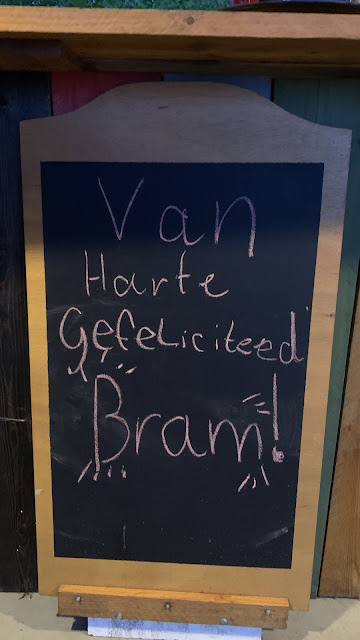 Van
Harte
Gefeliciteed
Bram!